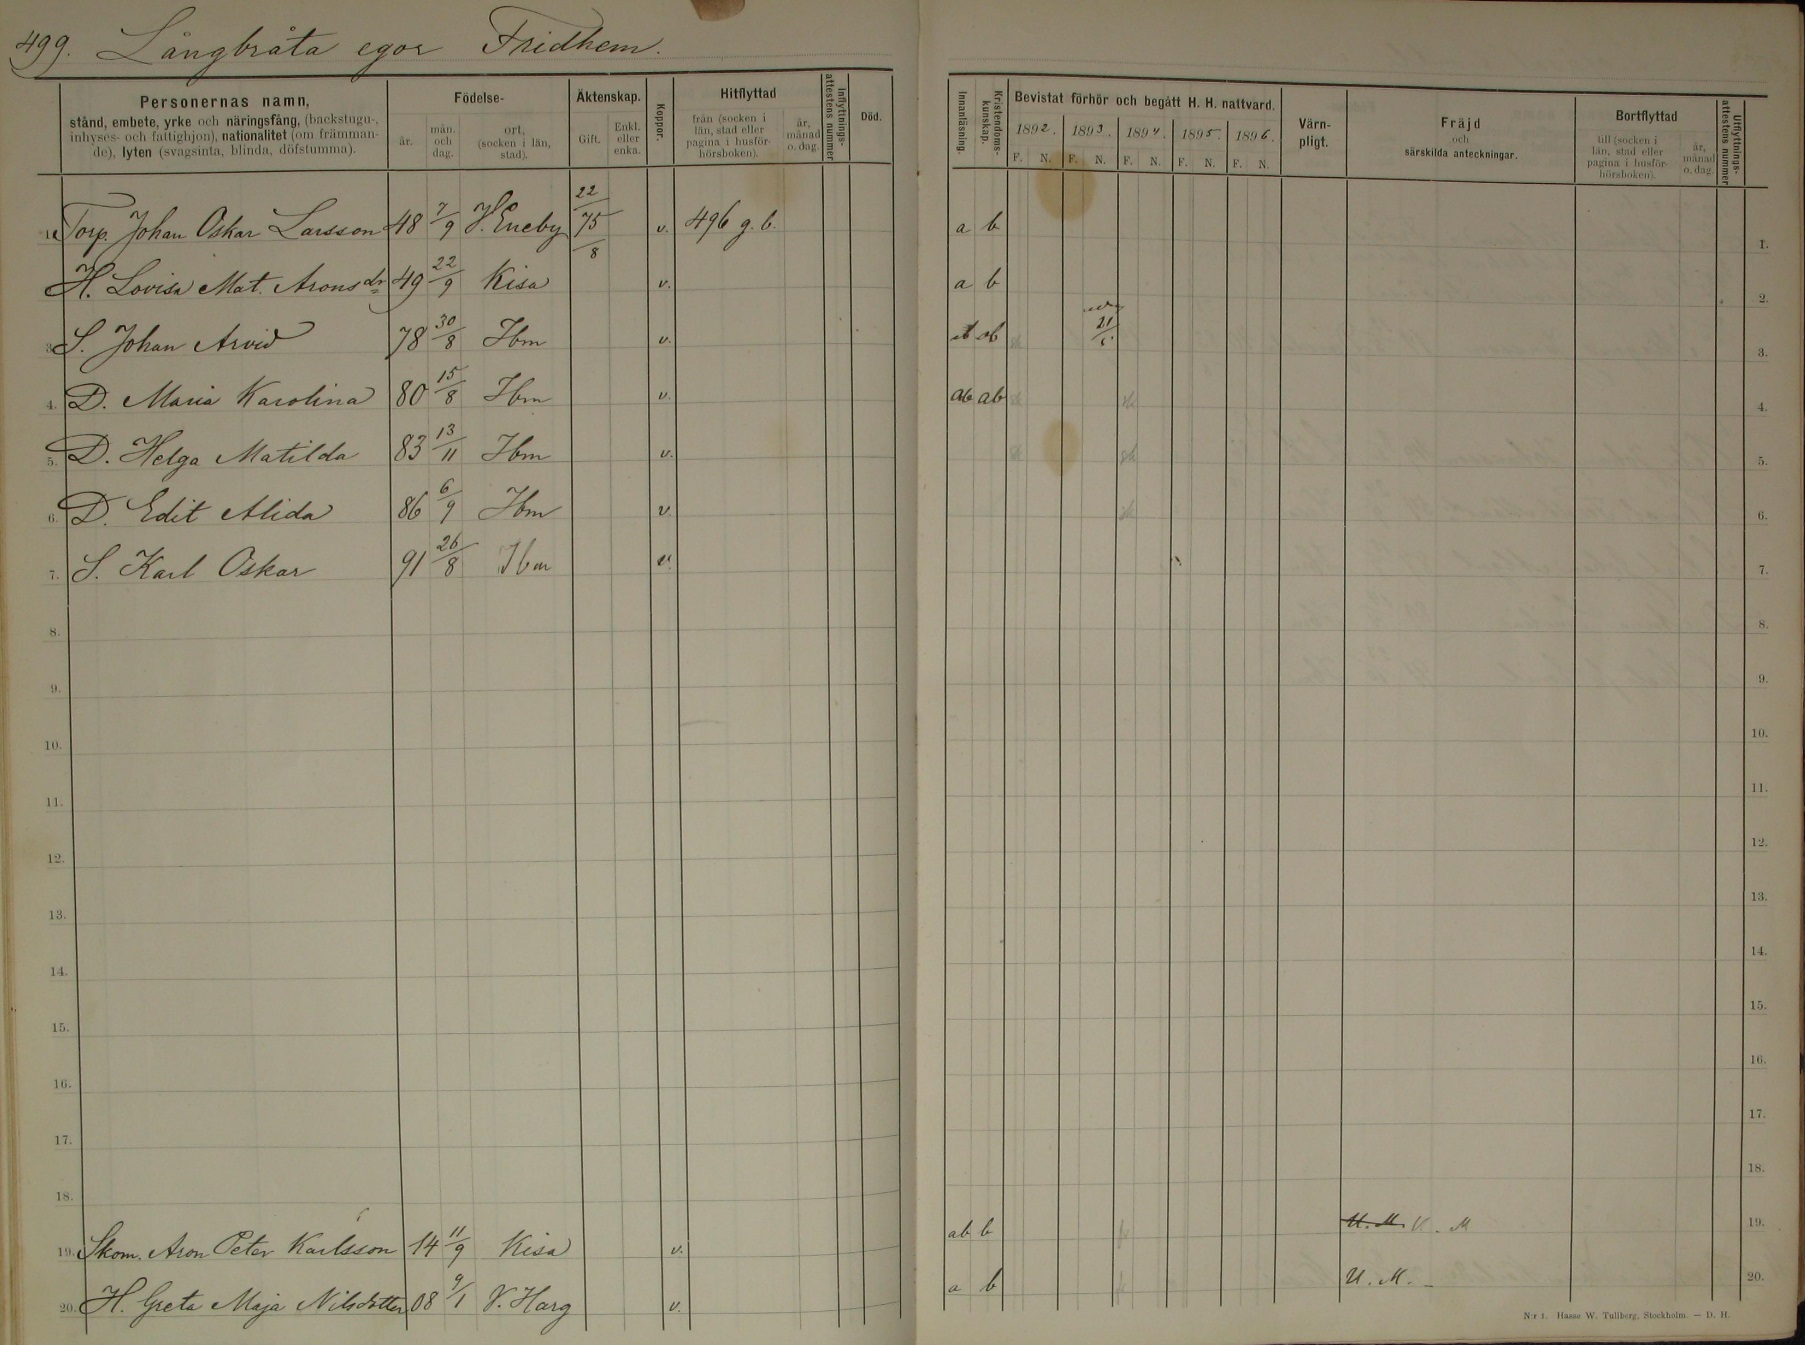 499. Långbråta egor Fridhem.
Personernas namn,
stånd, embete, yrke och näringsfång, (backstugu-,
inhyses- och fattighjon), nationalitet (om främman-
de), lyten (svagsinta, blinda, döfstumma).
Födelse-
år.
mån.
och
dag.
ort,
(socken i län,
stad).
Äktenskap.
Gift.
Enkl.
eller
enka.
Koppor.
Hitflyttad
från (socken i
län, stad eller
pagina i husför-
hörsboken).
år,
månad
o. dag.
Inflyttnings-
attestens nummer
Död.
Innanläsning.
Kristendoms-
kunskap.
Bevistat förhör och begått H. H. nattvard.
1892. 1893. 1894. 1895. 1896.
F. N. F. N. F. N. F. N. F. N.
Värn-
pligt.
Fräjd
och
särskilda anteckningar.
Bortflyttad
till (socken i
län, stad eller
pagina i husför-
hörsboken).
år,
månad
o. dag.
Utflyttnings-
attestens nummer
1. Torp. Johan Oskar Larsson 48 7/9 V. Eneby 22/75/8 v. 496 g. b. a b 1.
H. Lovisa Mat. Aronsdr 49 22/9 Kisa v. a b 2.
3. S. Johan Arvid 78 30/8 Ibm v. ab 21/5 3.
4. D. Maria Karolina 80 15/8 Ibm v. ab ab 4.
5. D. Helga Matilda 83 13/11 Ibm v. 5.
6. D. Edit Alida 86 6/9 Ibm v 6.
7. S. Karl Oskar 91 26/8 Ibm v. 7.
8. 8.
9. 9.
10. 10.
11. 11.
12. 12.
13. 13.
14. 14.
15. 15.
16. 16.
17. 17.
18. 18.
19. Skom. Aron Peter Karlsson 14 11/9 Kisa v. ab b U. M. V. M 19.
20. H. Greta Maja Nilsdotter 08 9/1 V. Harg v. a b U. M. 20.
N:r 1. Hasse W. Tullberg, Stockholm. — D. H.